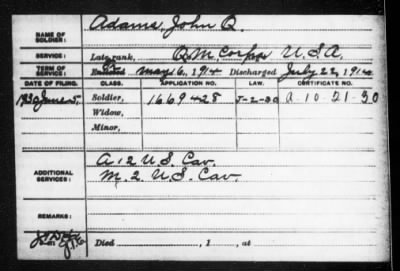 NAME OF SOLDIER: Adams, John Q.
SERVICE: Late rank, Q. M. Corps U.S.A.
TERM OF SERVICE: Enlisted May 6, 1914 Discharged July 22, 1914
DATE OF FILING. CLASS. APPLICATION NO. LAW. CERTIFICATE NO.
1930 June 5. Soldier, 1669428 J-2-30 A-10-21-30
Widow,
Minor,
ADDITIONAL SERVICES: A. 12 U.S. Cav.
M. 2. U.S. Cav.
REMARKS:
Died , 1 , at